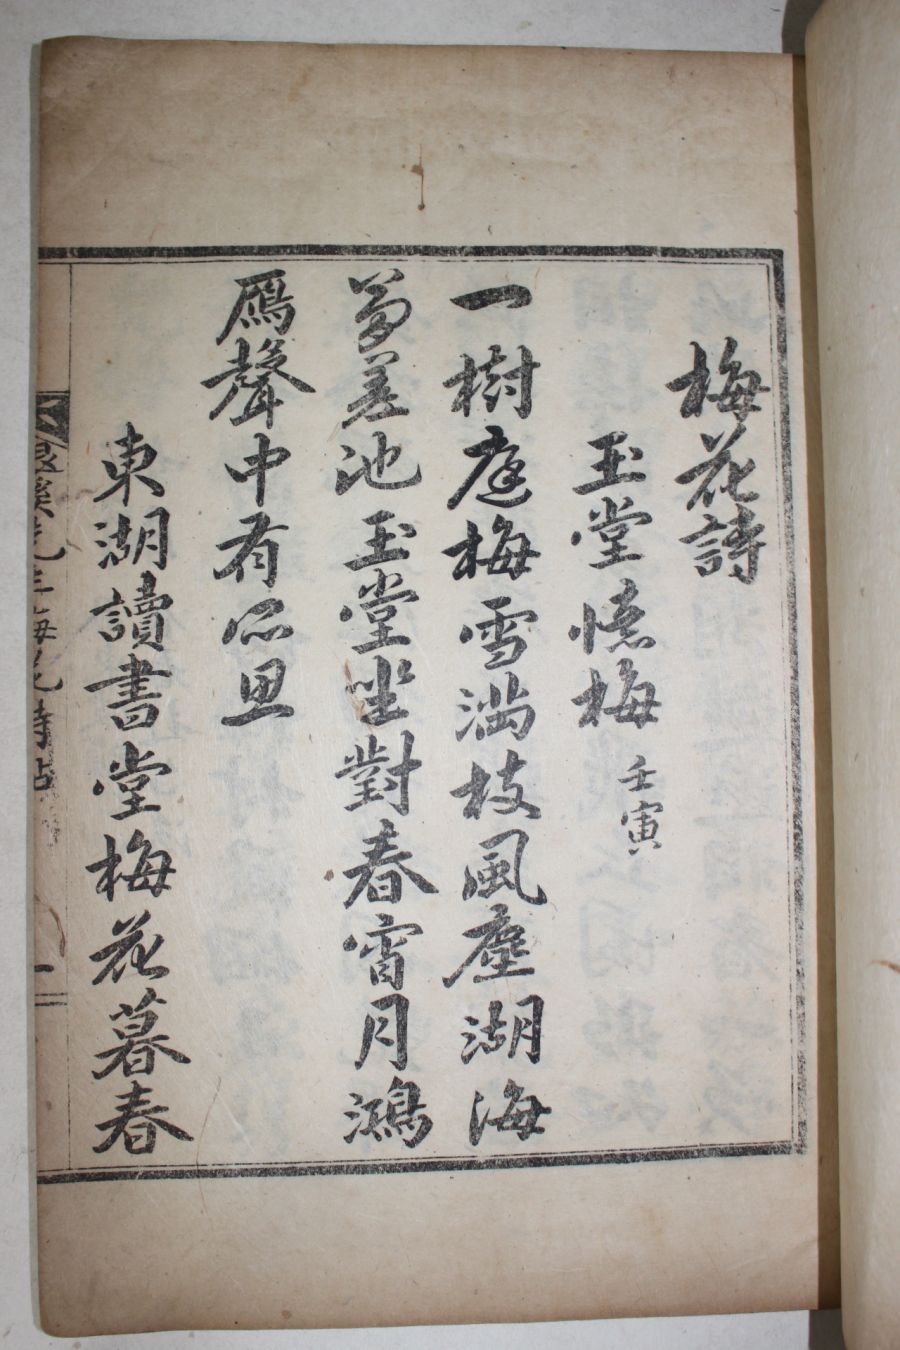 梅花詩
玉堂憶梅 壬寅
一樹庭梅雪滿枝風塵湖海
夢差池玉堂坐對春宵月鴻
鴈聲中有所思
東湖讀書堂梅花暮春
退溪先生梅花詩帖